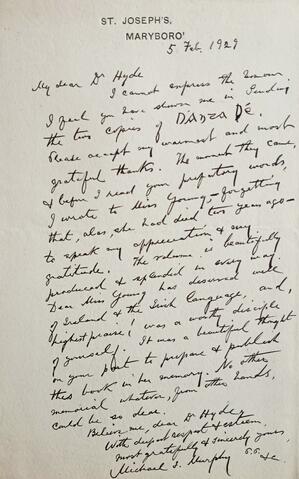 ST. JOSEPH'S,
MARYBORO'
5 Feb. 1929
My dear Dr Hyde
I cannot express the honour
I feel you have shown me in sending
the two copies of DÁNTA DÉ.
Please accept my warmest and most
grateful thanks. The moment they came,
& before I read your prefatory words,
I wrote to Miss Young – forgetting
that, alas, she had died two years ago –
to speak my appreciation & my
gratitude. The volume is beautifully
produced & splendid in every way.
Dear Miss Young has deserved well
of Ireland & the Irish Language, and,
highest praise! was a worthy disciple
of yourself. It was a beautiful thought
on your part to prepare & publish
this book in her memory. No other
memorial whatever, from other hands,
could be so dear.
Believe me, dear Dr Hyde,
With deepest respect & esteem,
most gratefully & sincerely yours,
Michael J. Murphy
&c